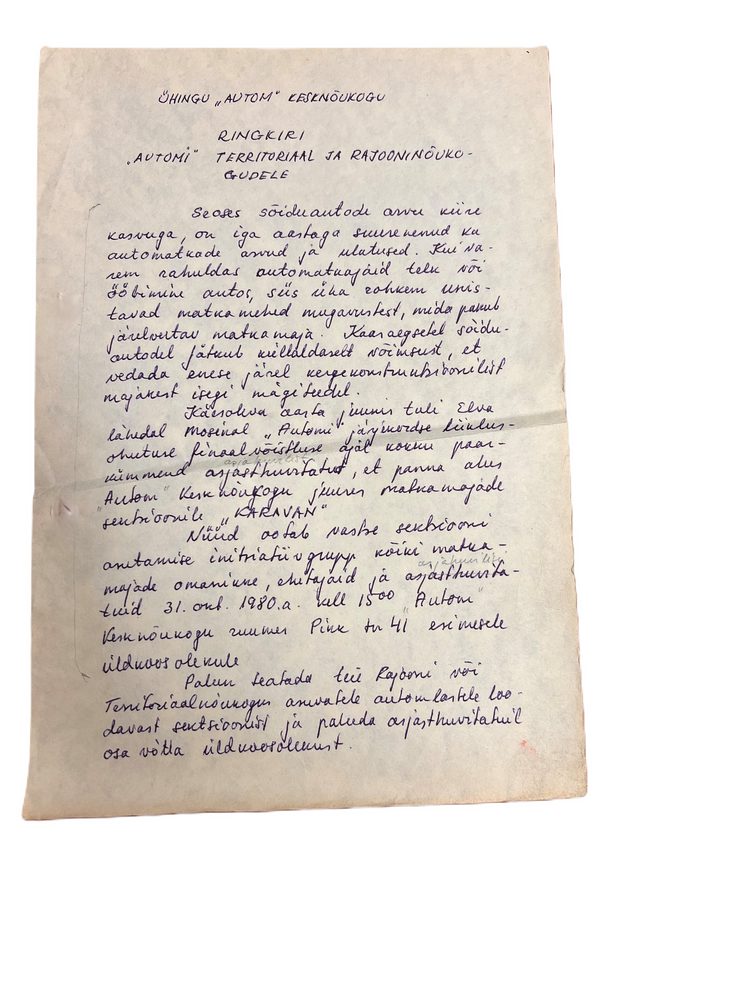 ÜHINGU „AUTOM" KESKNÕUKOGU
RINGKIRI
„AUTOMI" TERRITORIAAL JA RAJOONINÕUKO-
GUDELE
Seoses sõiduautode arvu kiire
kasvuga, on iga aastaga suurenenud ka
automatkade arvud ja ulatused. Kui va-
rem rahuldas automatkajaid telk või
ööbimine autos, siis üha rohkem unis-
tavad matkamehed mugavustest, mida pakub
järelveetav matkamaja. Kaasaegsetel sõidu-
autodel jätkub küllaldaselt võimsust, et
vedada enese järel kergekonstruktsioonilist
majakest isegi mägiteedel.
Käesoleva aasta juunis tuli Elva
lähedal Mosinal „Automi" järjekordse liiklus-
ohutuse finaalvõistluse ajal kokku paar-
asjahuvilist
kümmend asjasthuvitatut, et panna alus
"Autom" Kesknõukogu juures matkamajade
sektsioonile „KARAVAN"
Nüüd ootab vastse sektsiooni
asutamise initsiatiivgrupp kõiki matka-
asjahuvilisi
majade omanikke, ehitajaid ja asjasthuvita-
tuid 31. okt. 1980.a. kell 15⁰⁰ „Autom"
Kesknõukogu ruumes Pikk tn 41 esimesele
üldkoosolekule
Palun teatada teie Rajooni või
Territoriaalnõukogus asuvatele automlastele loo-
davast sektsioonist ja paluda asjasthuvitatuil
osa võtta üldkoosolekust.